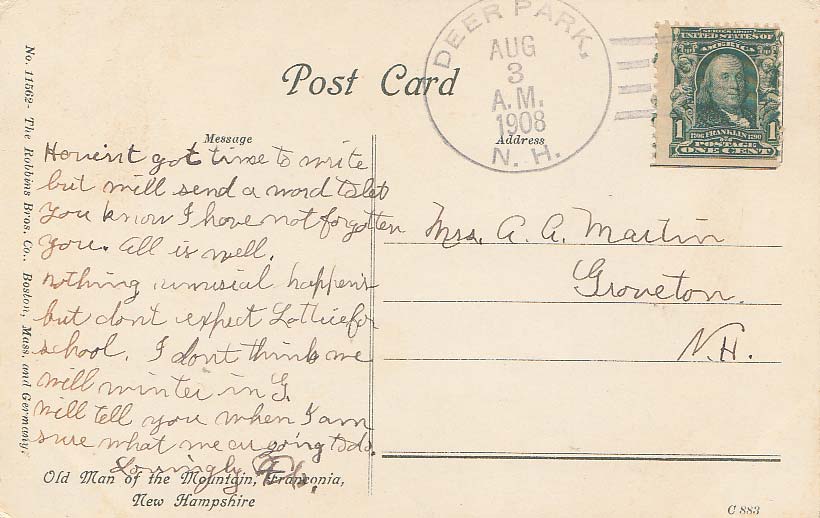 Post Card
DEER PARK,
AUG
3
A.M.
1908
N. H.
SERIES 1902
UNITED STATES OF
AMERICA
1706 FRANKLIN 1790
1 1
POSTAGE
ONE CENT
No. 11562- The Robbins Bros. Co., Boston, Mass. and Germany.
Message
Address
Haveint got time to write
but will send a word to let
you know I have not forgotten
you. All is well.
nothing unusial happens
but dont expect Lottie for
school. I dont think we
will winter in G.
Will tell you when I am
sure what we are going to do.
Lovingly
Mrs. A. A. Martin
Groveton.
N.H.
Old Man of the Mountain, Franconia,
New Hampshire
C 883